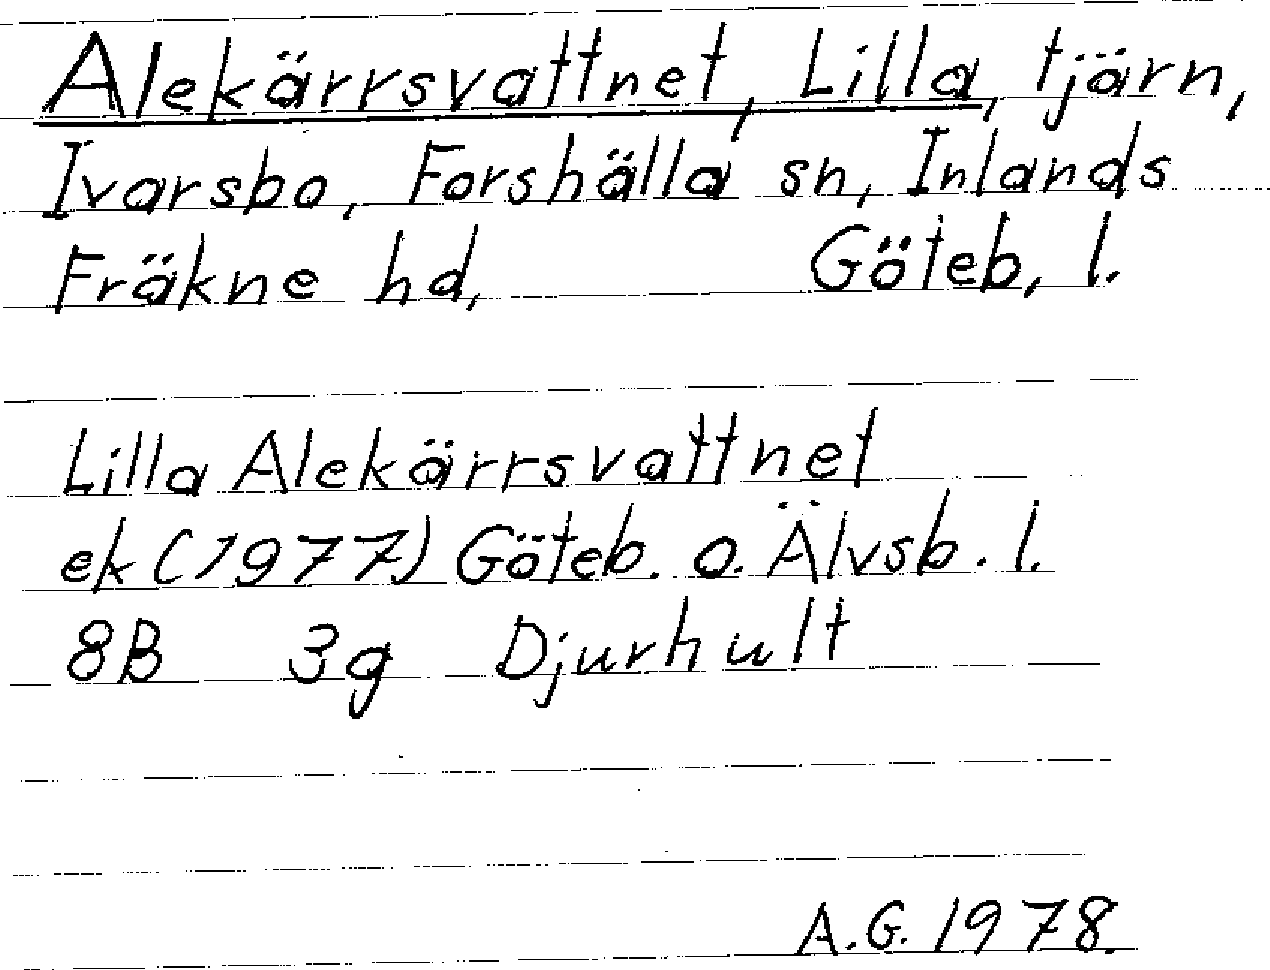 Alekärrsvattnet, Lilla, tjärn,
Ivarsbo, Forshälla sn, Inlands
Fräkne hd, Göteb, l.
Lilla Alekärrsvattnet
ek (1977) Göteb. o. Älvsb. l.
8B 3g Djurhult
A.G. 1978.